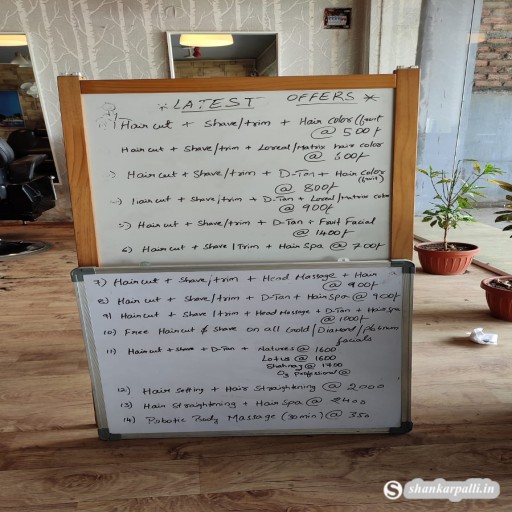 * LATEST OFFERS *
Haircut + Shave/trim + Hair color (fruit
@ 500/-
Haircut + Shave/trim + Loreal/Matrix hair color
@ 600/-
Haircut + Shave/trim + D-Tan + Hair color
(fruit)
@ 800/-
Haircut + Shave/trim + D-Tan + Loreal/matrix color
@ 900/-
5) Haircut + Shave/trim + D-Tan + Fruit Facial
@ 1400/-
6) Haircut + Shave/Trim + Hair Spa @ 700/-
7) Haircut + Shave/trim + Head Massage + Hair
@ 900/-
8) Haircut + Shave/trim + D-Tan + Hair Spa @ 900/-
9) Haircut + Shave/trim + Head Massage + D-Tan + Hair Spa
@ 1000/-
10) Free Haircut & Shave on all Gold/Diamond/platinum
facials
11) Haircut + Shave + D-Tan + Natures @ 1600
Lotus @ 1600
@ 1700
O3 Professional @
12) Hair Setting + Hair Straightening @ 2000
13) Hair Straightening + Hair Spa @ 2400
14) Robotic Body Massage (30min) @ 350
shankarpalli.in